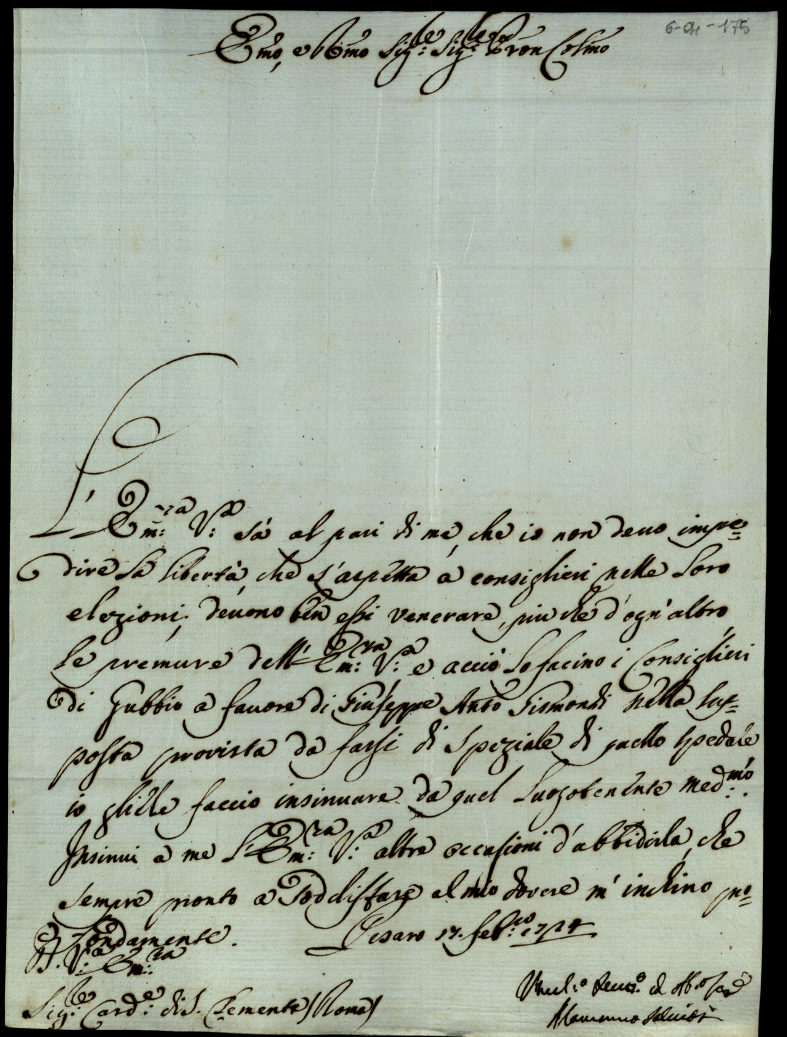 6-04-175
Emo, e Rmo Sig:re Sig:re Pron Colmo
L' Em:za V:a sà al pari di me, che io non deuo impe=
dire la libertà, che s'aspetta a' consiglieri nelle loro
elezioni; deuono ben essi venerare, piu che d'ogn'altro,
le premure dell' Em:za V:a e acciò lo facino i Consiglieri
di Gubbio a fauore di Giuseppe Anto Gismondi nella sup=
posta provista da farsi di speziale di quello spedale
io gliele faccio insinuare da quel Luogotenente med:mo.
Insinui a me l'Em:za V:a altre occasioni d'abbidirla, che
sempre pronto a soddisfare al mio dovere m'inchino pro=
fondamente. Pesaro 17. feb:ro 1724
D. V:a Em:za
Sig:re Card:e di S. Clemente (Roma)
Salviati